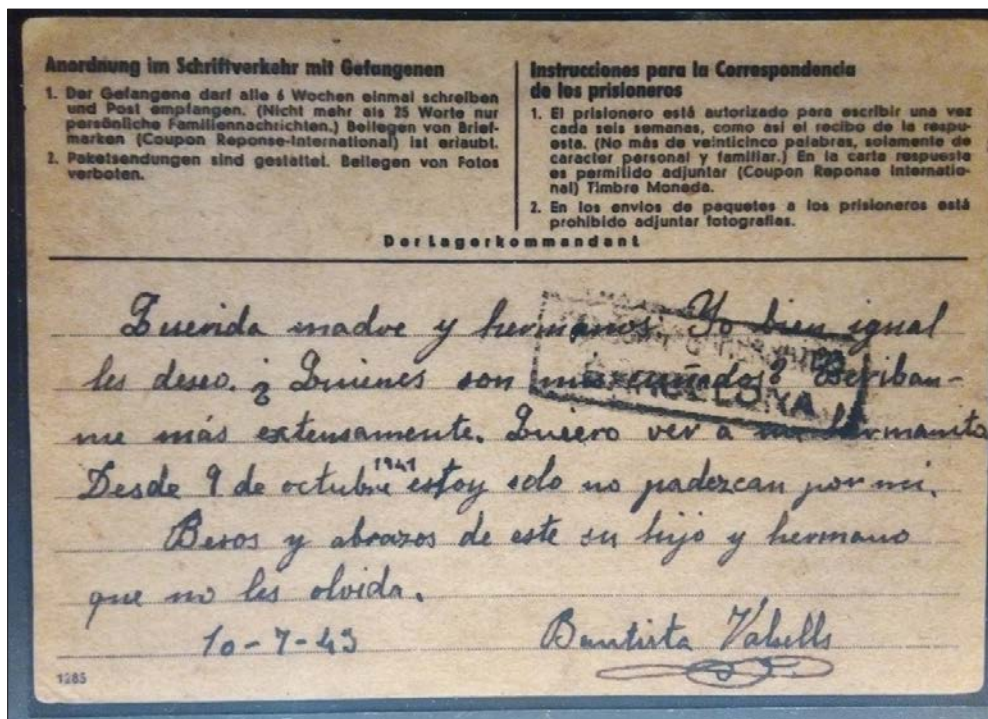 Anordnung im Schriftverkehr mit Gefangenen
1. Der Gefangene darf alle 6 Wochen einmal schreiben
und Post empfangen. (Nicht mehr als 25 Worte nur
persönliche Familiennachrichten.) Beilegen von Brief-
marken (Coupon Reponse-International) ist erlaubt.
2. Paketsendungen sind gestattet. Beilegen von Fotos
verboten.
Instrucciones para la Correspondencia
de los prisioneros
1. El prisionero está autorizado para escribir una vez
cada seis semanas, como así el recibo de la respu-
esta. (No más de veinticinco palabras, solamente de
caracter personal y familiar.) En la carta respuesta
es permitido adjuntar (Coupon Reponse Internatio-
nal) Timbre Moneda.
2. En los envios de paquetes a los prisioneros está
prohibido adjuntar fotografías.
Der Lagerkommandant
Querida madre y hermanos. Yo bien igual
les deseo. ¿Quienes son mis cuñados? Escriban-
me más extensamente. Quiero ver a mi hermanita
Desde 9 de octubre 1941 estoy solo no padezcan por mi.
Besos y abrazos de este su hijo y hermano
que no les olvida.
10-7-43
Bautista Vabells
BARCELONA
1285